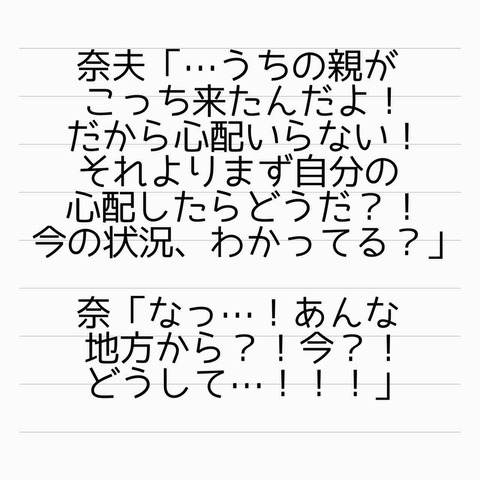 奈夫「…うちの親が
こっち来たんだよ！
だから心配いらない！
それよりまず自分の
心配したらどうだ？！
今の状況、わかってる？」
奈「なっ…！あんな
地方から？！今？！
どうして…！！！」